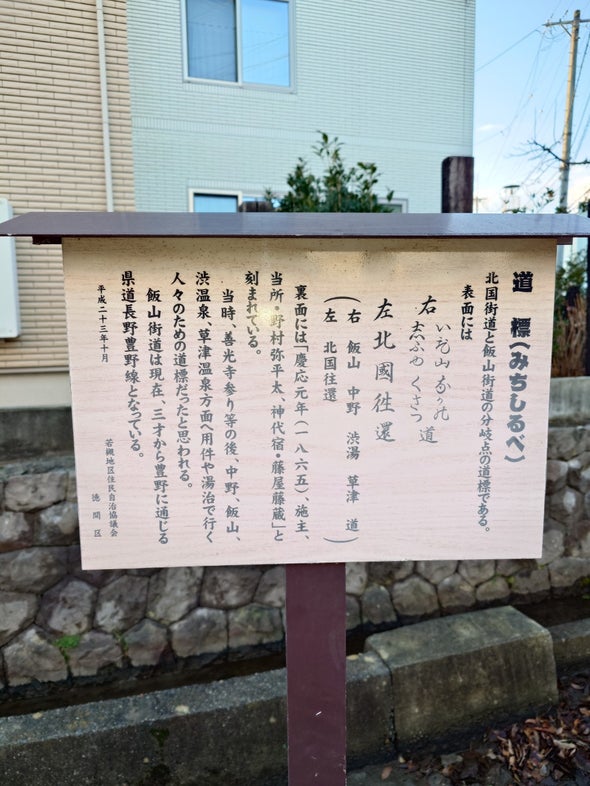 道標(みちしるべ)
北国街道と飯山街道の分岐点の道標である。
表面には
右 いゝ山 なかの
志ぶゆ くさつ 道
左北國徃還
(右 飯山 中野 渋湯 草津 道)
(左 北国往還)
裏面には「慶応元年(一八六五)、施主、
当所・野村弥平太、神代宿・藤屋藤蔵」と
刻まれている。
当時、善光寺参り等の後、中野、飯山、
渋温泉、草津温泉方面へ用件や湯治で行く
人々のための道標だったと思われる。
飯山街道は現在、三才から豊野に通じる
県道長野豊野線となっている。
平成二十三年十月
若槻地区住民自治協議会
徳間区